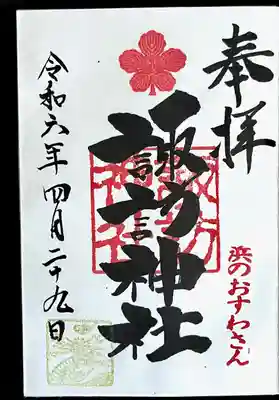 奉拝
浜のおすわさん
諏訪神社
諏訪神社
令和六年四月二十九日